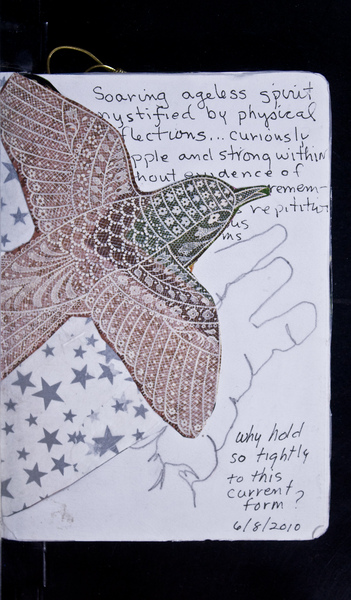 Soaring ageless spirit
mystified by physical
flections... curiously
pple and strong within
hout evidence of
remem-
s repititi
us
ms
why hold
so tightly
to this
current
form?
6/8/2010